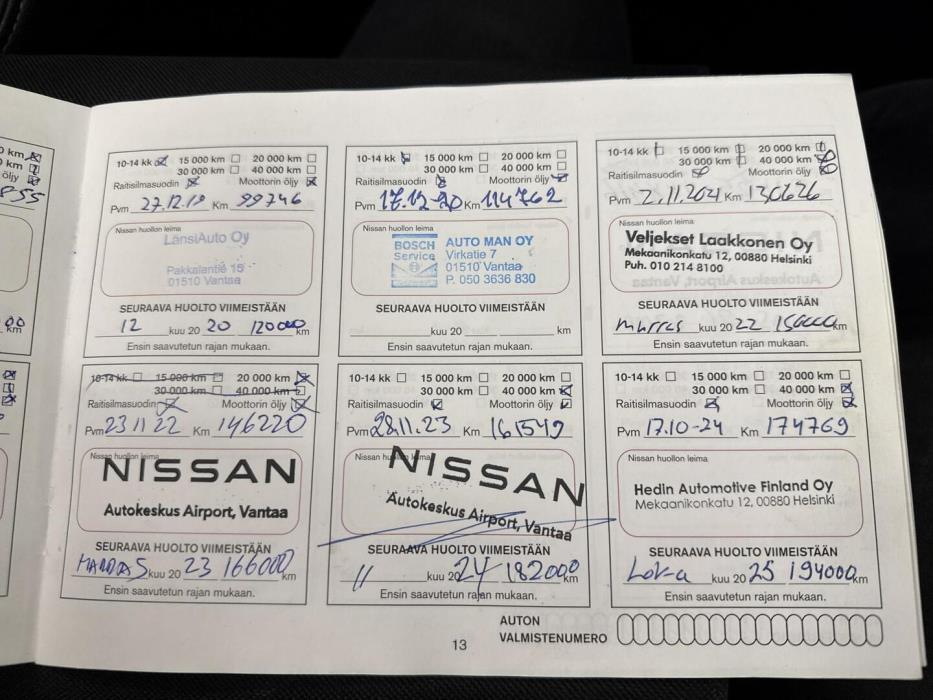 km
km
öljy
8-55
00 km
10-14 kk 15 000 km 20 000 km
30 000 km 40 000 km
Raitisilmasuodin Moottorin öljy
Pvm 27.12.19 Km 99746
Nissan huollon leima
LänsiAuto Oy
Pakkalantie 15
01510 Vantaa
SEURAAVA HUOLTO VIIMEISTÄÄN
12 kuu 20 20 120000 km
Ensin saavutetun rajan mukaan.
10-14 kk 15 000 km 20 000 km
30 000 km 40 000 km
Raitisilmasuodin Moottorin öljy
Pvm 17.12-20 Km 114762
Nissan huollon leima
BOSCH
Service
AUTO MAN OY
Virkatie 7
01510 Vantaa
P. 050 3636 830
SEURAAVA HUOLTO VIIMEISTÄÄN
kuu 20 km
Ensin saavutetun rajan mukaan.
10-14 kk 15 000 km 20 000 km
30 000 km 40 000 km
Raitisilmasuodin Moottorin öljy
Pvm 2.11.2021 Km 130626
Nissan huollon leima
Veljekset Laakkonen Oy
Mekaanikonkatu 12, 00880 Helsinki
Puh. 010 214 8100
SEURAAVA HUOLTO VIIMEISTÄÄN
marras kuu 20 22 150000 km
Ensin saavutetun rajan mukaan.
10-14 kk 15 000 km 20 000 km
30 000 km 40 000 km
Raitisilmasuodin Moottorin öljy
Pvm 23 11 22 Km 146220
Nissan huollon leima
NISSAN
Autokeskus Airport, Vantaa
SEURAAVA HUOLTO VIIMEISTÄÄN
MARRAS kuu 20 23 166000 km
Ensin saavutetun rajan mukaan.
10-14 kk 15 000 km 20 000 km
30 000 km 40 000 km
Raitisilmasuodin Moottorin öljy
Pvm 28.11.23 Km 161549
Nissan huollon leima
NISSAN
Autokeskus Airport, Vantaa
SEURAAVA HUOLTO VIIMEISTÄÄN
11 kuu 20 24 182000 km
Ensin saavutetun rajan mukaan.
10-14 kk 15 000 km 20 000 km
30 000 km 40 000 km
Raitisilmasuodin Moottorin öljy
Pvm 17.10-24 Km 174769
Nissan huollon leima
Hedin Automotive Finland Oy
Mekaanikonkatu 12, 00880 Helsinki
SEURAAVA HUOLTO VIIMEISTÄÄN
Lok-a kuu 20 25 194000 km
Ensin saavutetun rajan mukaan.
AUTON
VALMISTENUMERO
13